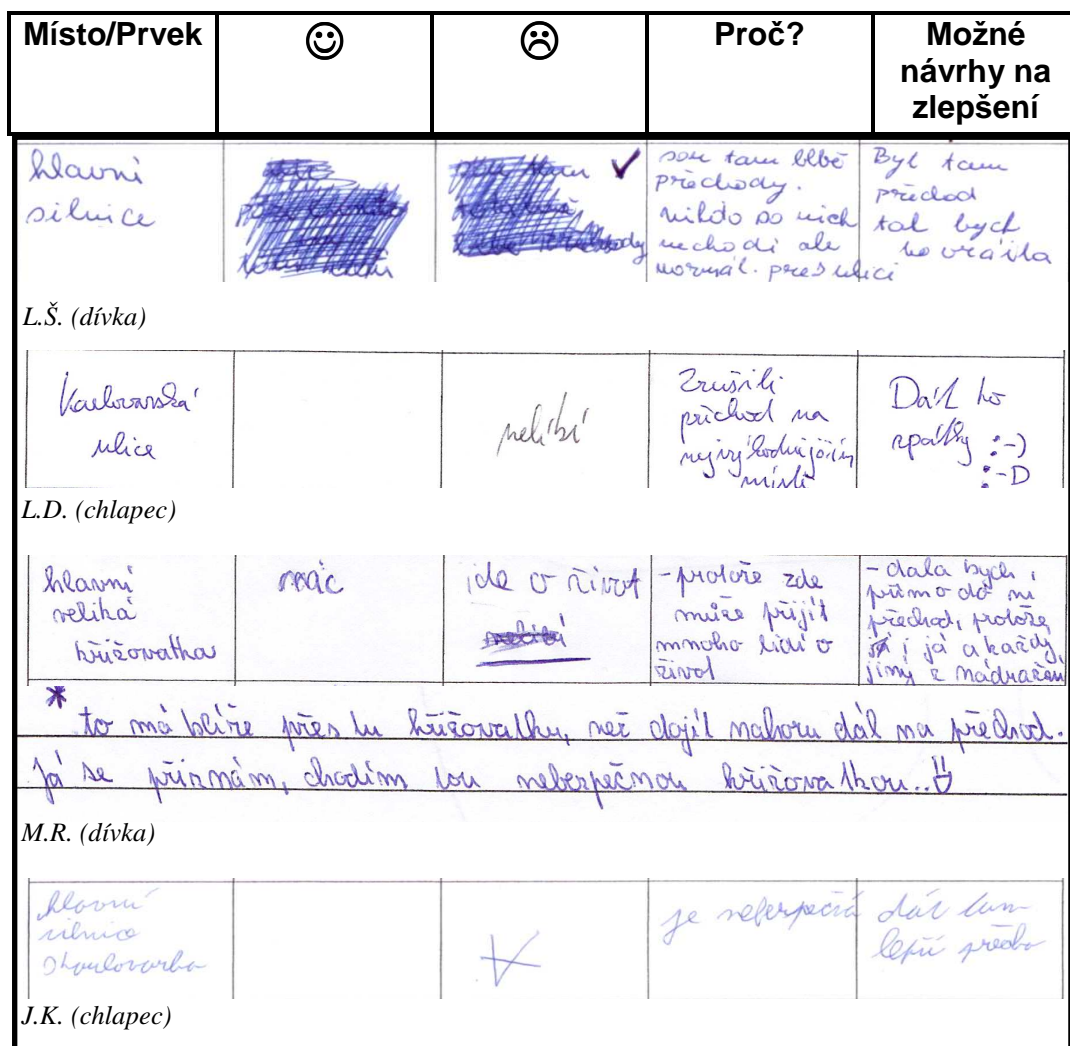 Místo/Prvek ☺ ☹ Proč? Možné
návrhy na
zlepšení
hlavní
silnice
✓
sou tam blbě
přechody.
nikdo po nich
nechodí ale
normál. přes ulici
Byl tam
přechod
tak bych
ho vrátila
L.Š. (dívka)
Karlovarská
ulice
nelíbí
Zrušili
přechod na
nejvýhodnějším
místě
Dát ho
zpátky :-)
:-D
L.D. (chlapec)
hlavní
veliká
křižovatka
nic
jde o život
nelíbí
- protože zde
může přijít
mnoho lidí o
život
- dala bych
přímo do ní
přechod, protože
i já a každý
jiný z nádražní
* to má blíže přes tu křižovatku, než dojít nahoru dál na přechod.
Já se přiznám, chodím tou nebezpečnou křižovatkou..
M.R. (dívka)
hlavní
silnice
je nebezpečná
dát tam
lepší přecho
J.K. (chlapec)